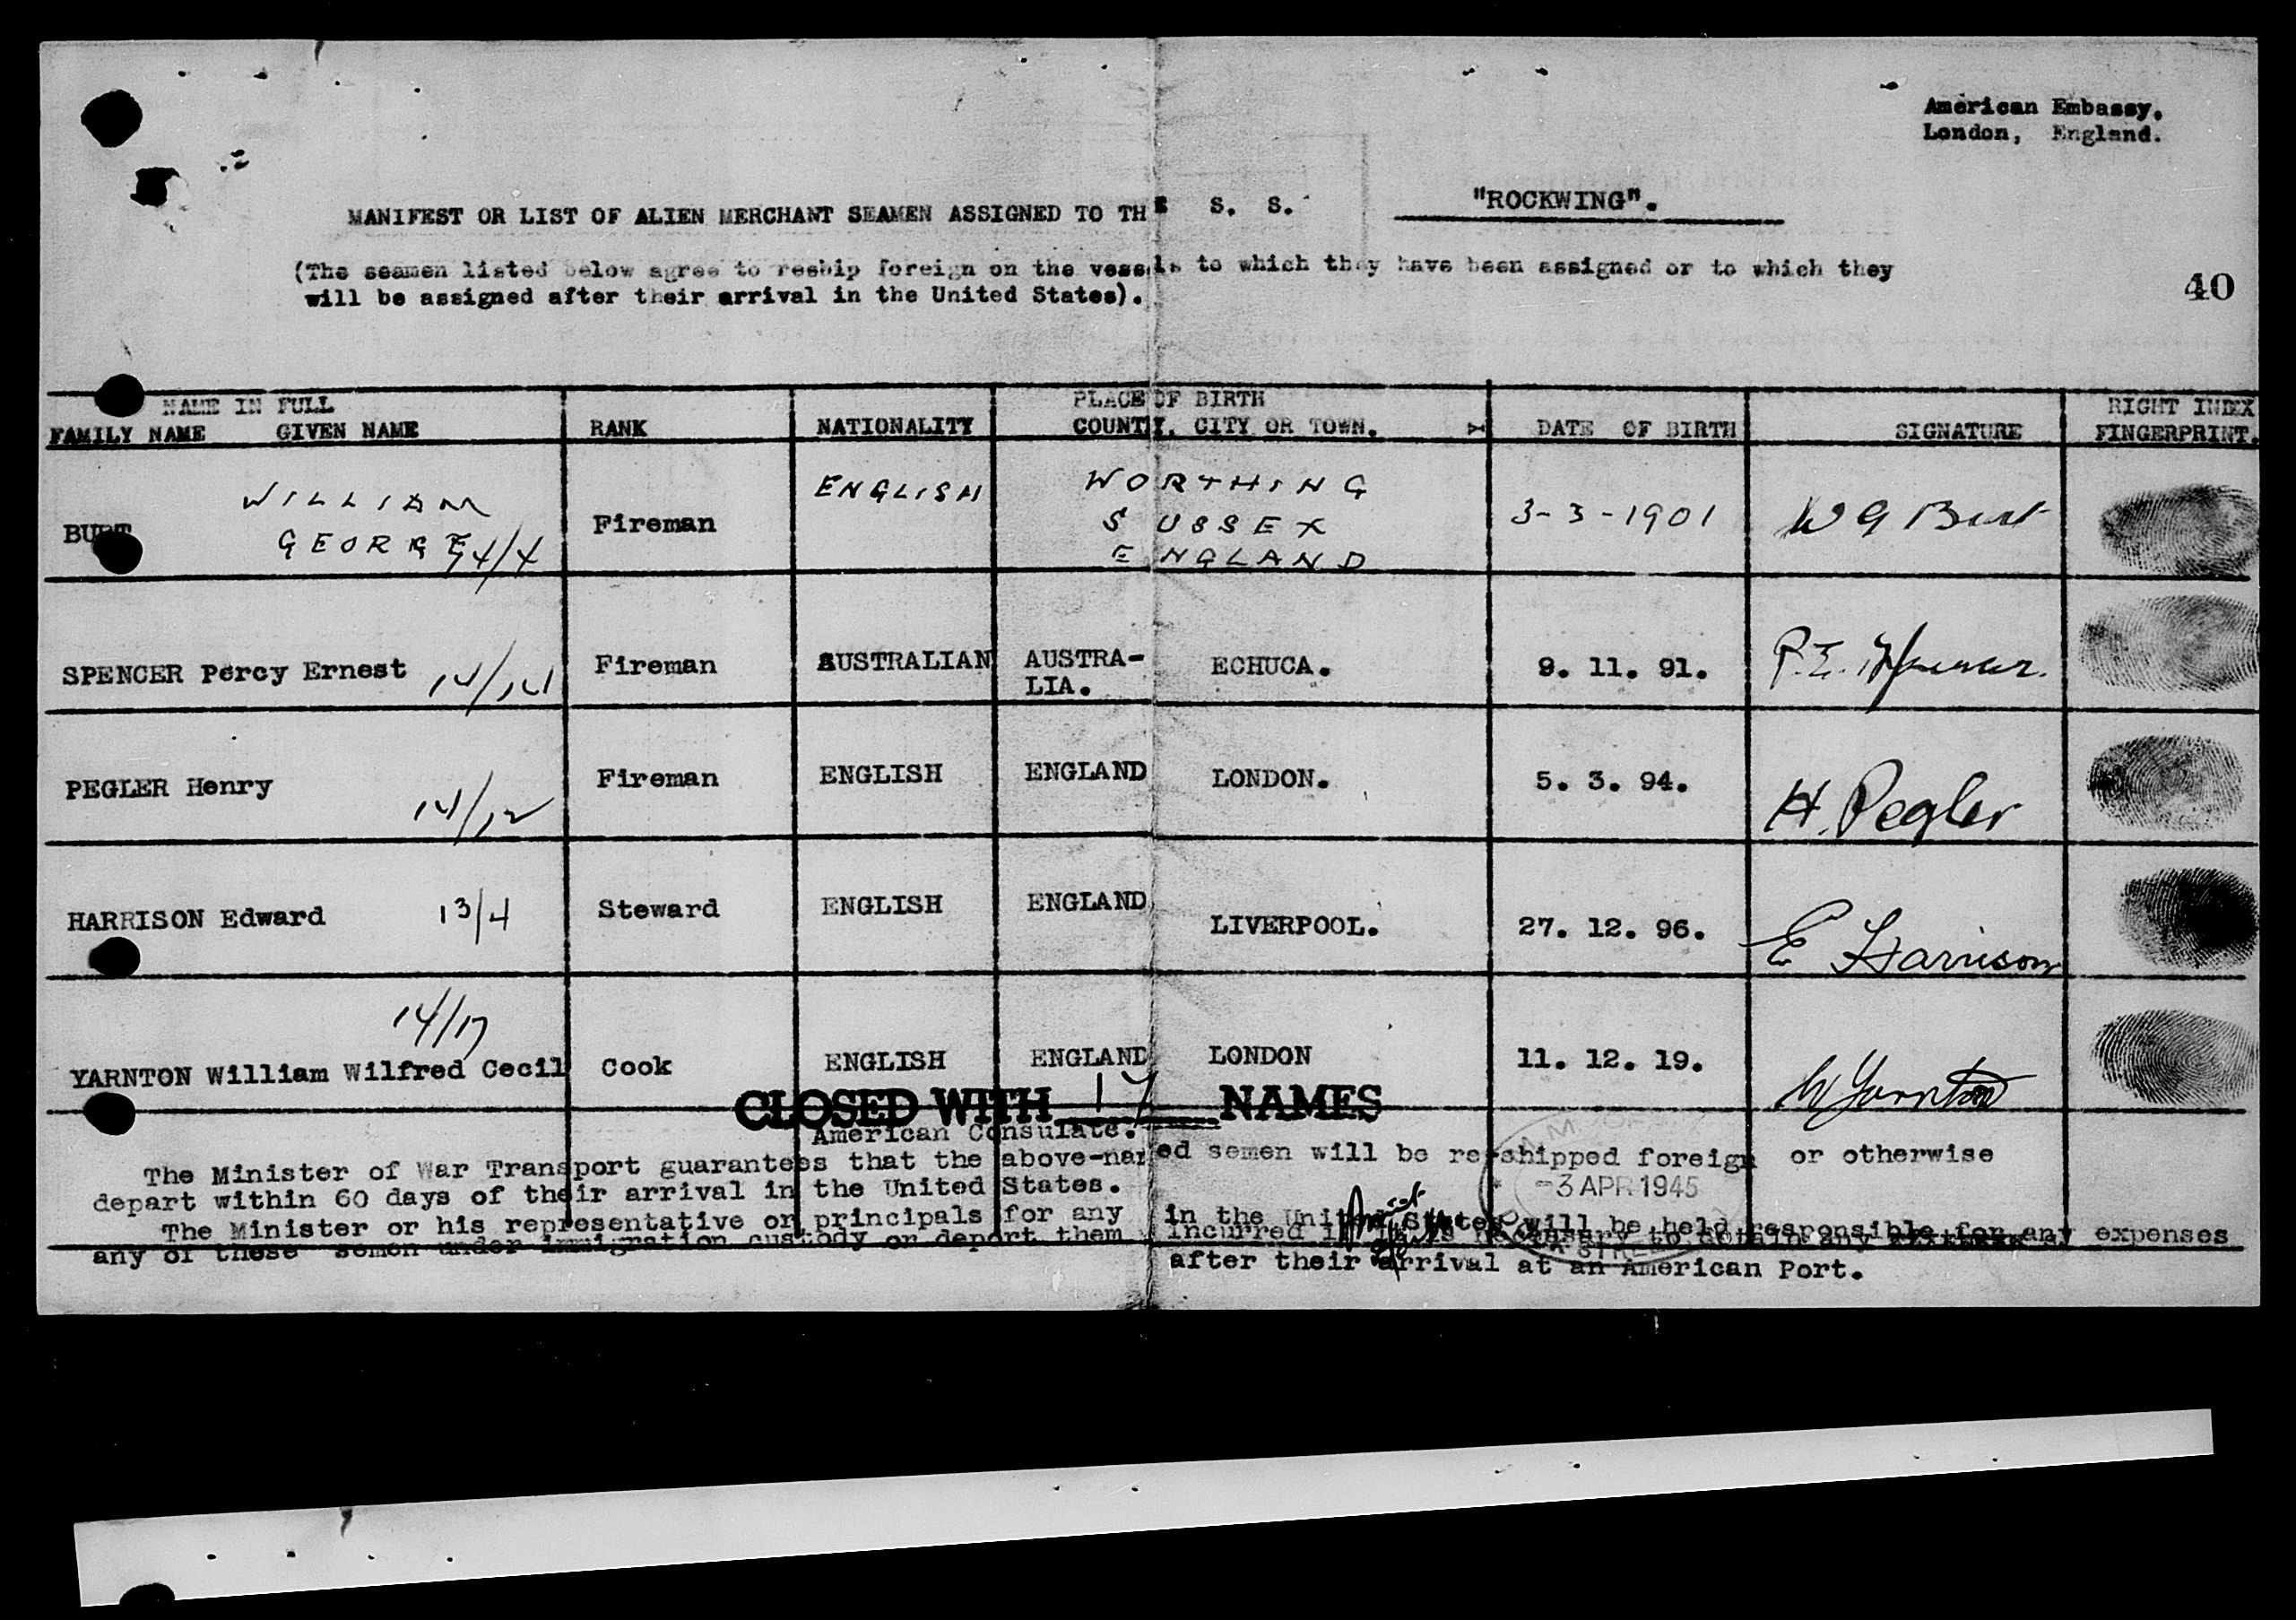 American Embassy.
London, England.
MANIFEST OR LIST OF ALIEN MERCHANT SEAMEN ASSIGNED TO THE S. S. "ROCKWING".
(The seamen listed below agree to reship foreign on the vessels to which they have been assigned or to which they
will be assigned after their arrival in the United States).
40
NAME IN FULL PLACE OF BIRTH RIGHT INDEX
FAMILY NAME GIVEN NAME RANK NATIONALITY COUNTY, CITY OR TOWN. DATE OF BIRTH SIGNATURE FINGERPRINT.
WILLIAM ENGLISH WORTHING
BURT GEORGE Fireman SUSSEX 3-3-1901 W G Burt
ENGLAND
SPENCER Percy Ernest 14/14 Fireman AUSTRALIAN AUSTRA- ECHUCA. 9. 11. 91. P.E. Spencer.
LIA.
PEGLER Henry 14/12 Fireman ENGLISH ENGLAND LONDON. 5. 3. 94. H. Pegler
HARRISON Edward 13/4 Steward ENGLISH ENGLAND LIVERPOOL. 27. 12. 96. E Harrison
14/17
YARNTON William Wilfred Cecil Cook ENGLISH ENGLAND LONDON 11. 12. 19. W Yarnton
CLOSED WITH 17 NAMES
American Consulate.
The Minister of War Transport guarantees that the above-named semen will be re-shipped foreign or otherwise
depart within 60 days of their arrival in the United States.
-3 APR 1945
The Minister or his representative or principals for any in the United States will be held responsible for any expenses
any of these semen under immigration custody or deport them incurred
after their arrival at an American Port.